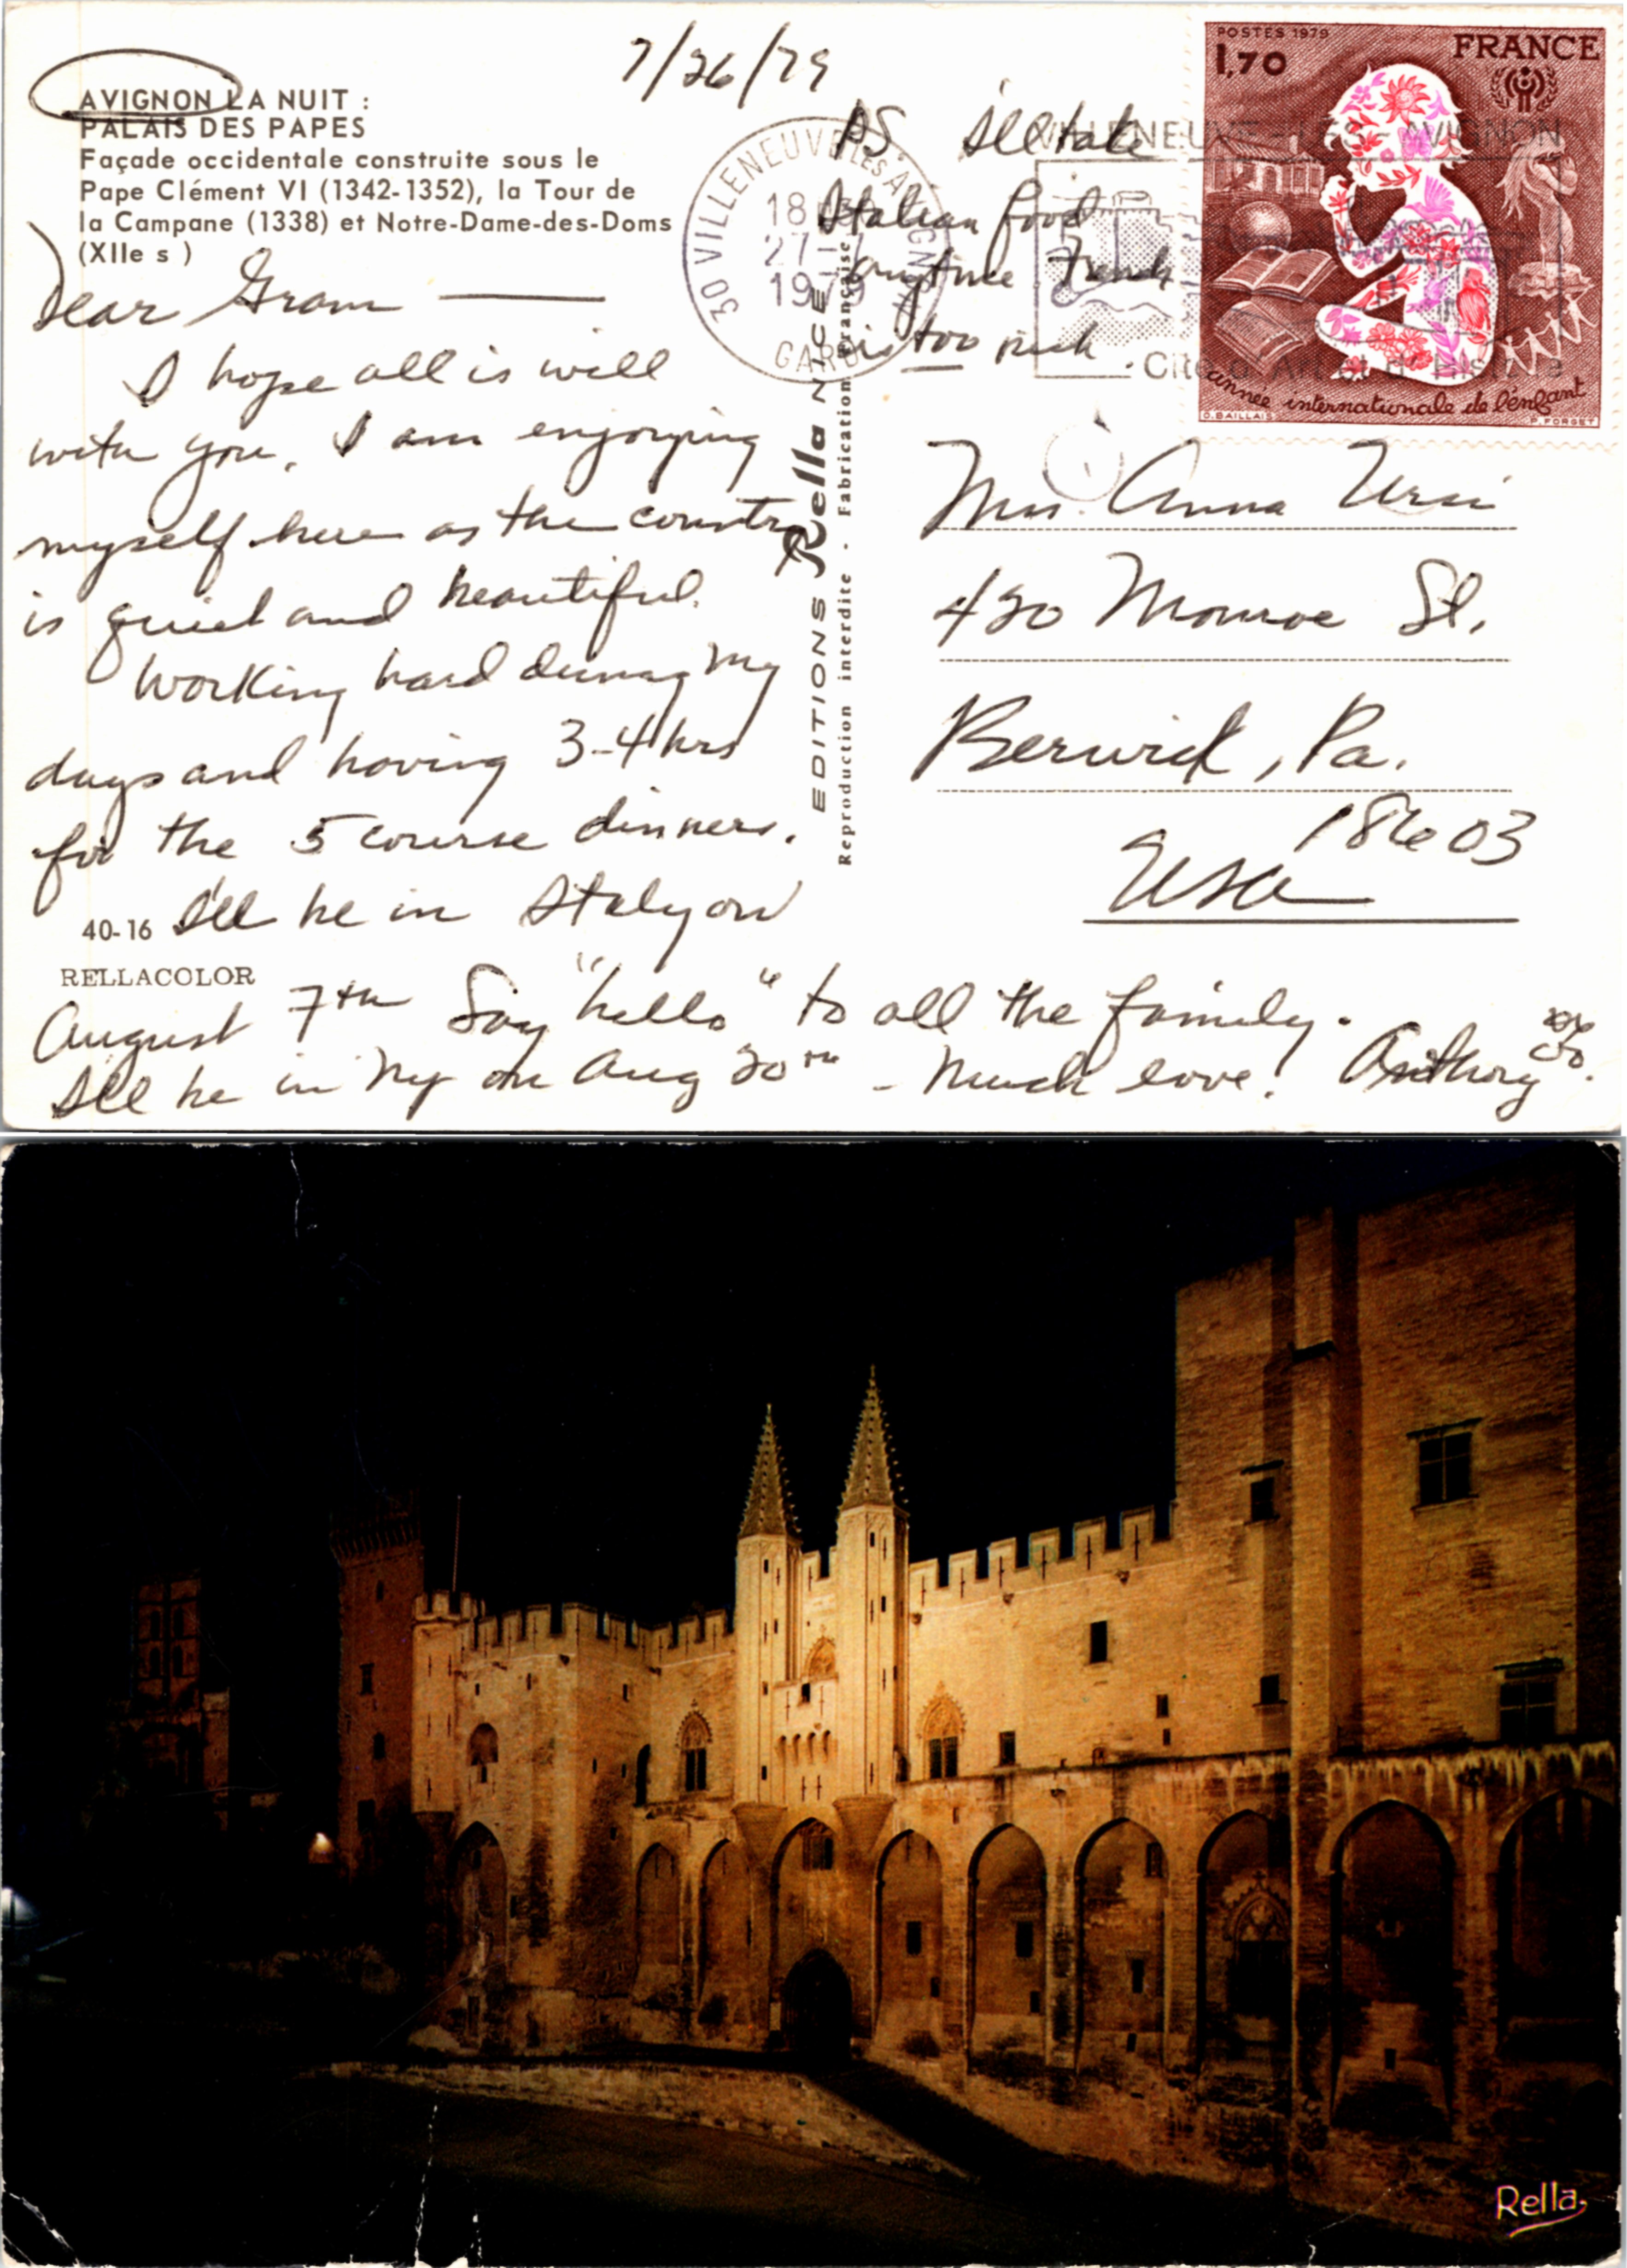 7/26/79
AVIGNON LA NUIT :
PALAIS DES PAPES
Façade occidentale construite sous le
Pape Clément VI (1342-1352), la Tour de
la Campane (1338) et Notre-Dame-des-Doms
(XIIe s )
Dear Gram —
I hope all is well
with you. I am enjoying
myself here as the country
is quiet and beautiful.
Working hard during my
days and having 3-4 hrs
for the 5 course dinners.
I'll be in Italy on
40-16
RELLACOLOR
August 7th Say "hello" to all the family.
I'll be in NY on Aug 20th - Much love! Anthony
PS I'll take
Italian food
anytime French
is too rich.
30 VILLENEUVE LES AVIGNON
18
27-7
1979
GARD
VILLENEUVE LES AVIGNON
Cité d'Art et d'Histoire
POSTES 1979
1,70
FRANCE
année internationale de l'enfant
D. BAILLAIS
P. FORGET
EDITIONS Rella NICE
Reproduction interdite - Fabrication Française
Mrs. Anna Ursi
420 Monroe St.
Berwick, Pa.
18603
USA
Rella